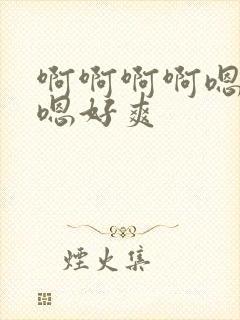 啊啊啊啊嗯
嗯好爽
煙火集